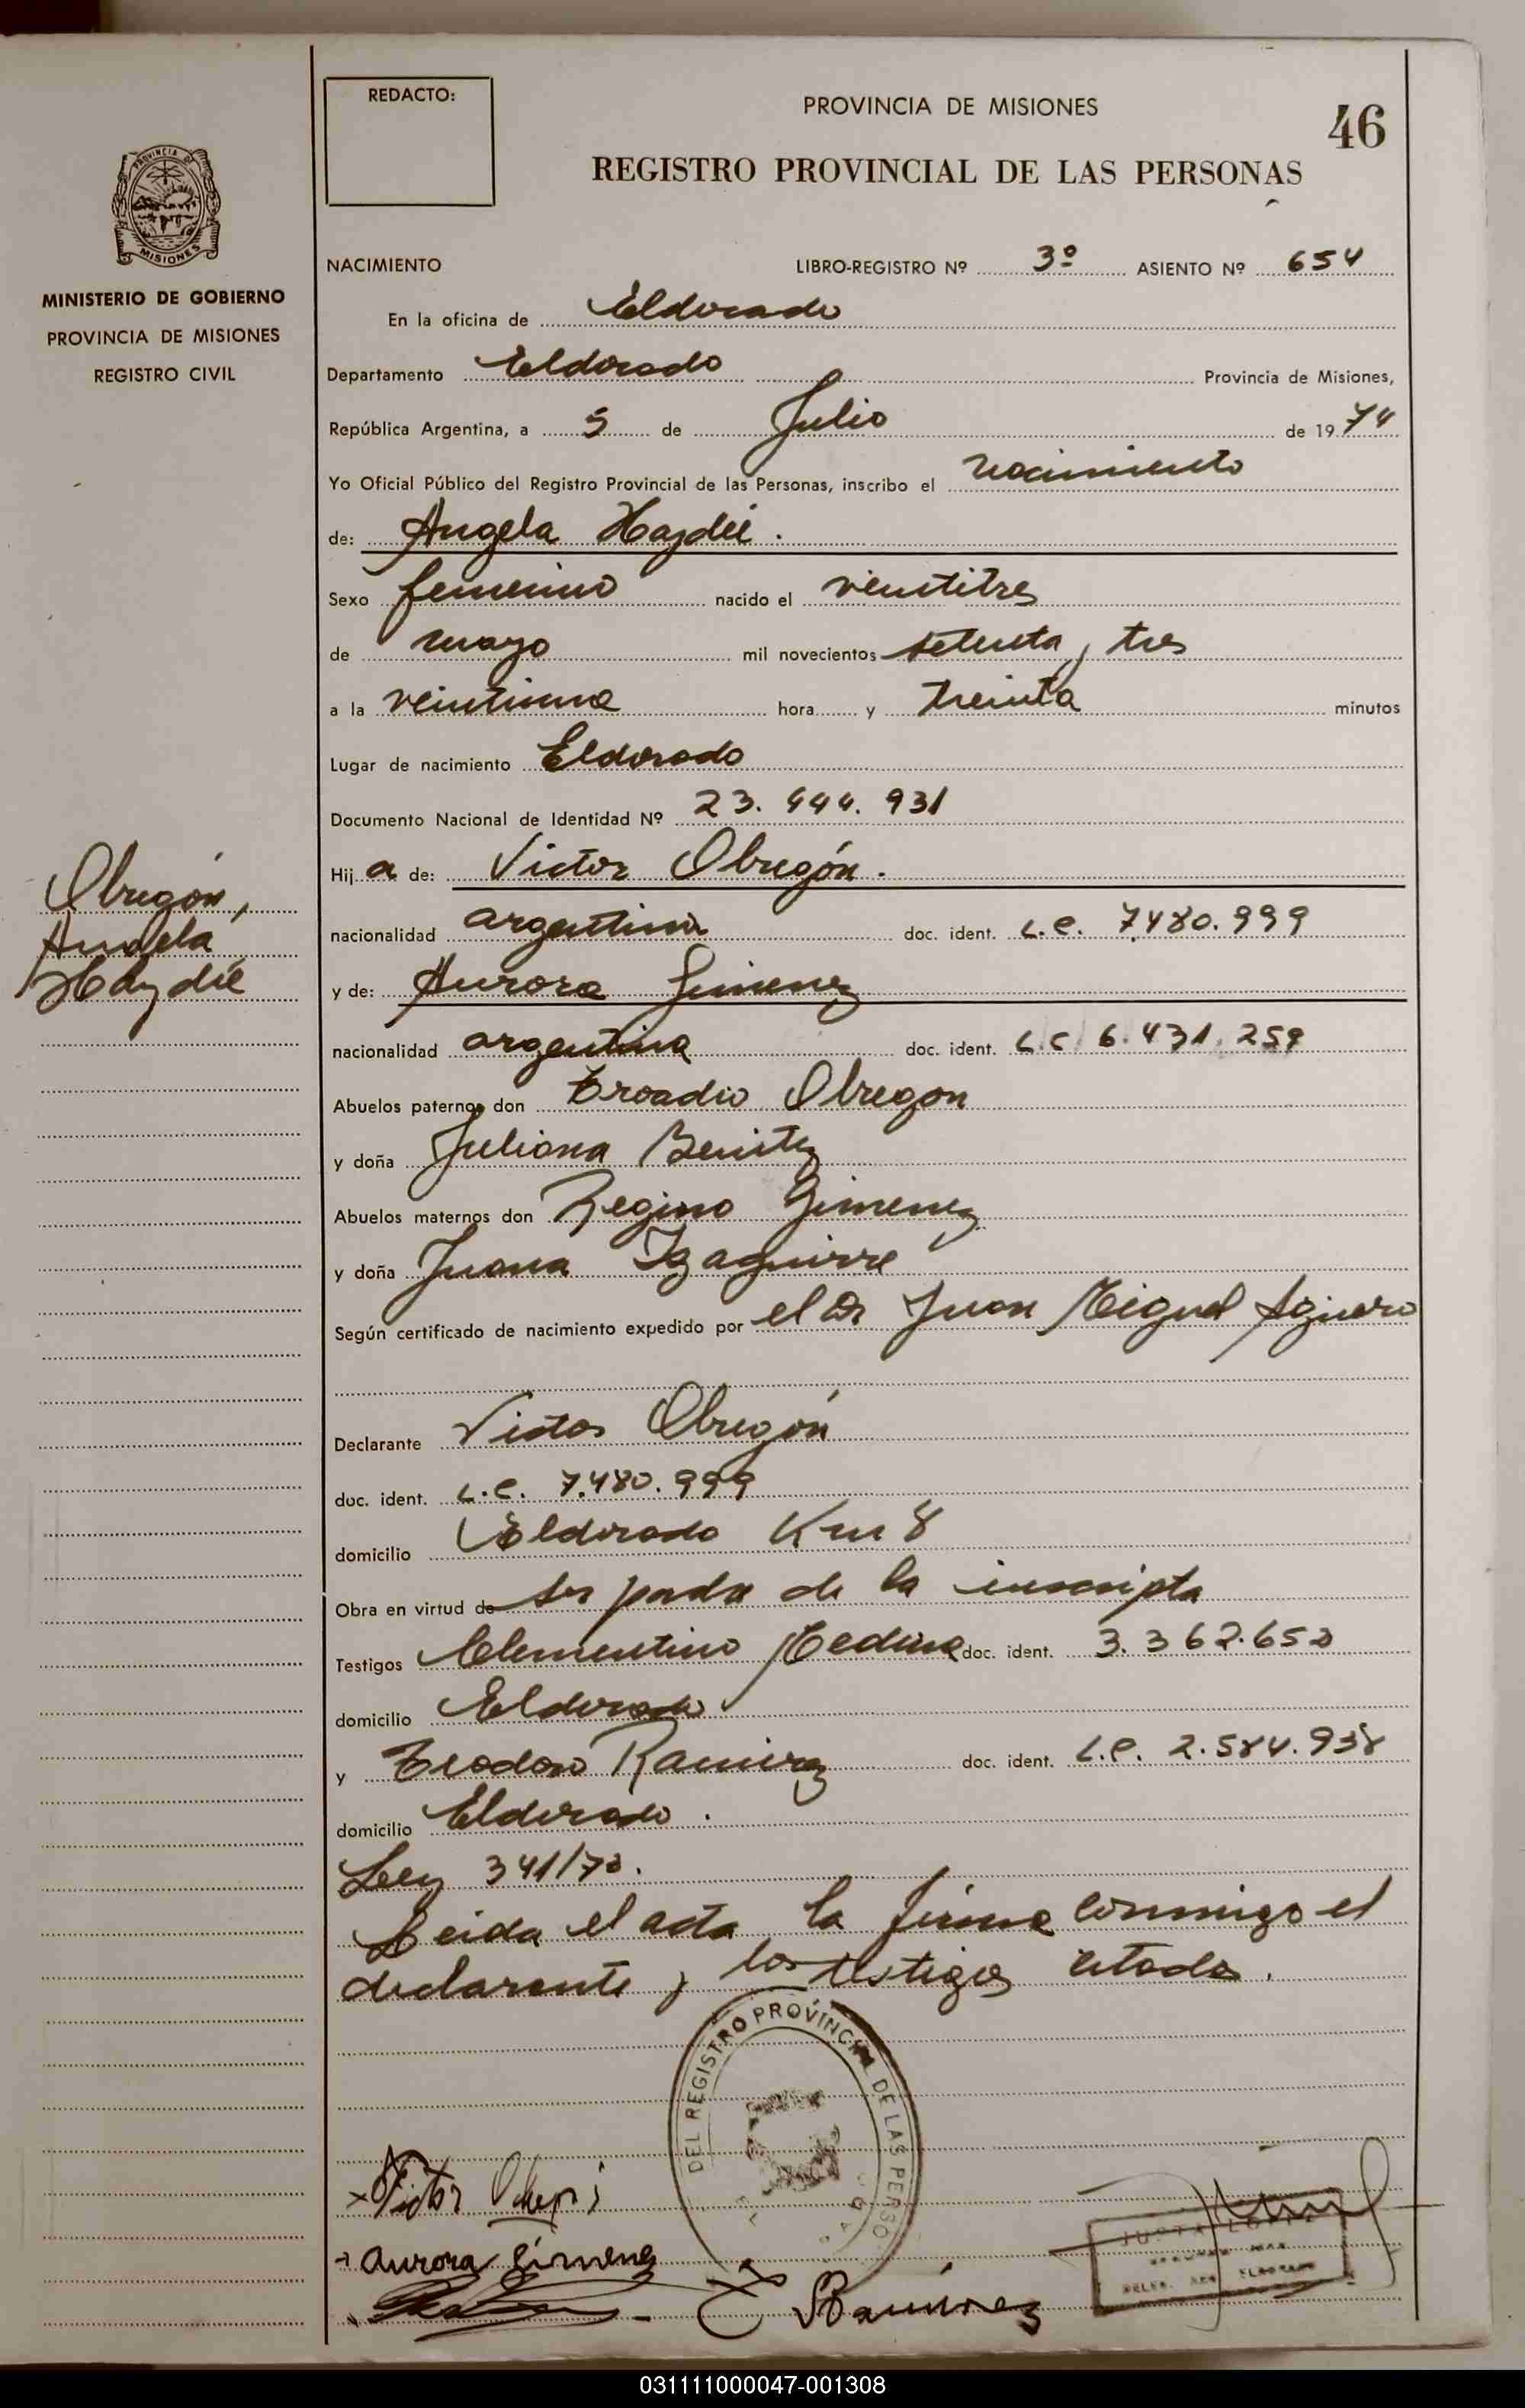 REDACTO:
PROVINCIA DE MISIONES
46
REGISTRO PROVINCIAL DE LAS PERSONAS
PROVINCIA DE
MISIONES
MINISTERIO DE GOBIERNO
PROVINCIA DE MISIONES
REGISTRO CIVIL
NACIMIENTO LIBRO-REGISTRO Nº 3º ASIENTO Nº 654
En la oficina de Eldorado
Departamento Eldorado Provincia de Misiones,
República Argentina, a 5 de Julio de 1974
Yo Oficial Público del Registro Provincial de las Personas, inscribo el nacimiento
de: Angela Haydée.
Sexo femenino nacido el veintitres
de mayo mil novecientos setenta y tres
a la veintiuna hora y treinta minutos
Lugar de nacimiento Eldorado
Documento Nacional de Identidad Nº 23.444.931
Hija de: Victor Obregón.
nacionalidad argentina doc. ident. L.E. 7.480.999
Obregón,
Angela
Haydée
y de: Aurora Gimenez
nacionalidad argentina doc. ident. L.C 6.431.259
Abuelos paternos don Broadio Obregon
y doña Juliana Benitez
Abuelos maternos don Regino Gimenez
y doña Juana Izaguirre
Según certificado de nacimiento expedido por el Dr Juan Miguel Aguero
Declarante Victor Obregón
doc. ident. L.E. 7.480.999
domicilio Eldorado Km 8
Obra en virtud de ser padre de la inscripta
Testigos Clementino Medina doc. ident. 3.362.652
domicilio Eldorado
y Teodoro Ramirez doc. ident. L.E. 2.584.938
domicilio Eldorado.
Ley 341/73.
Leida el acta la firma conmigo el
declarante y los testigos citados.
DEL REGISTRO PROVINCIAL DE LAS PERSO
Victor Obregon
Aurora Gimenez
Ramirez
JUSTA LOPEZ
031111000047-001308